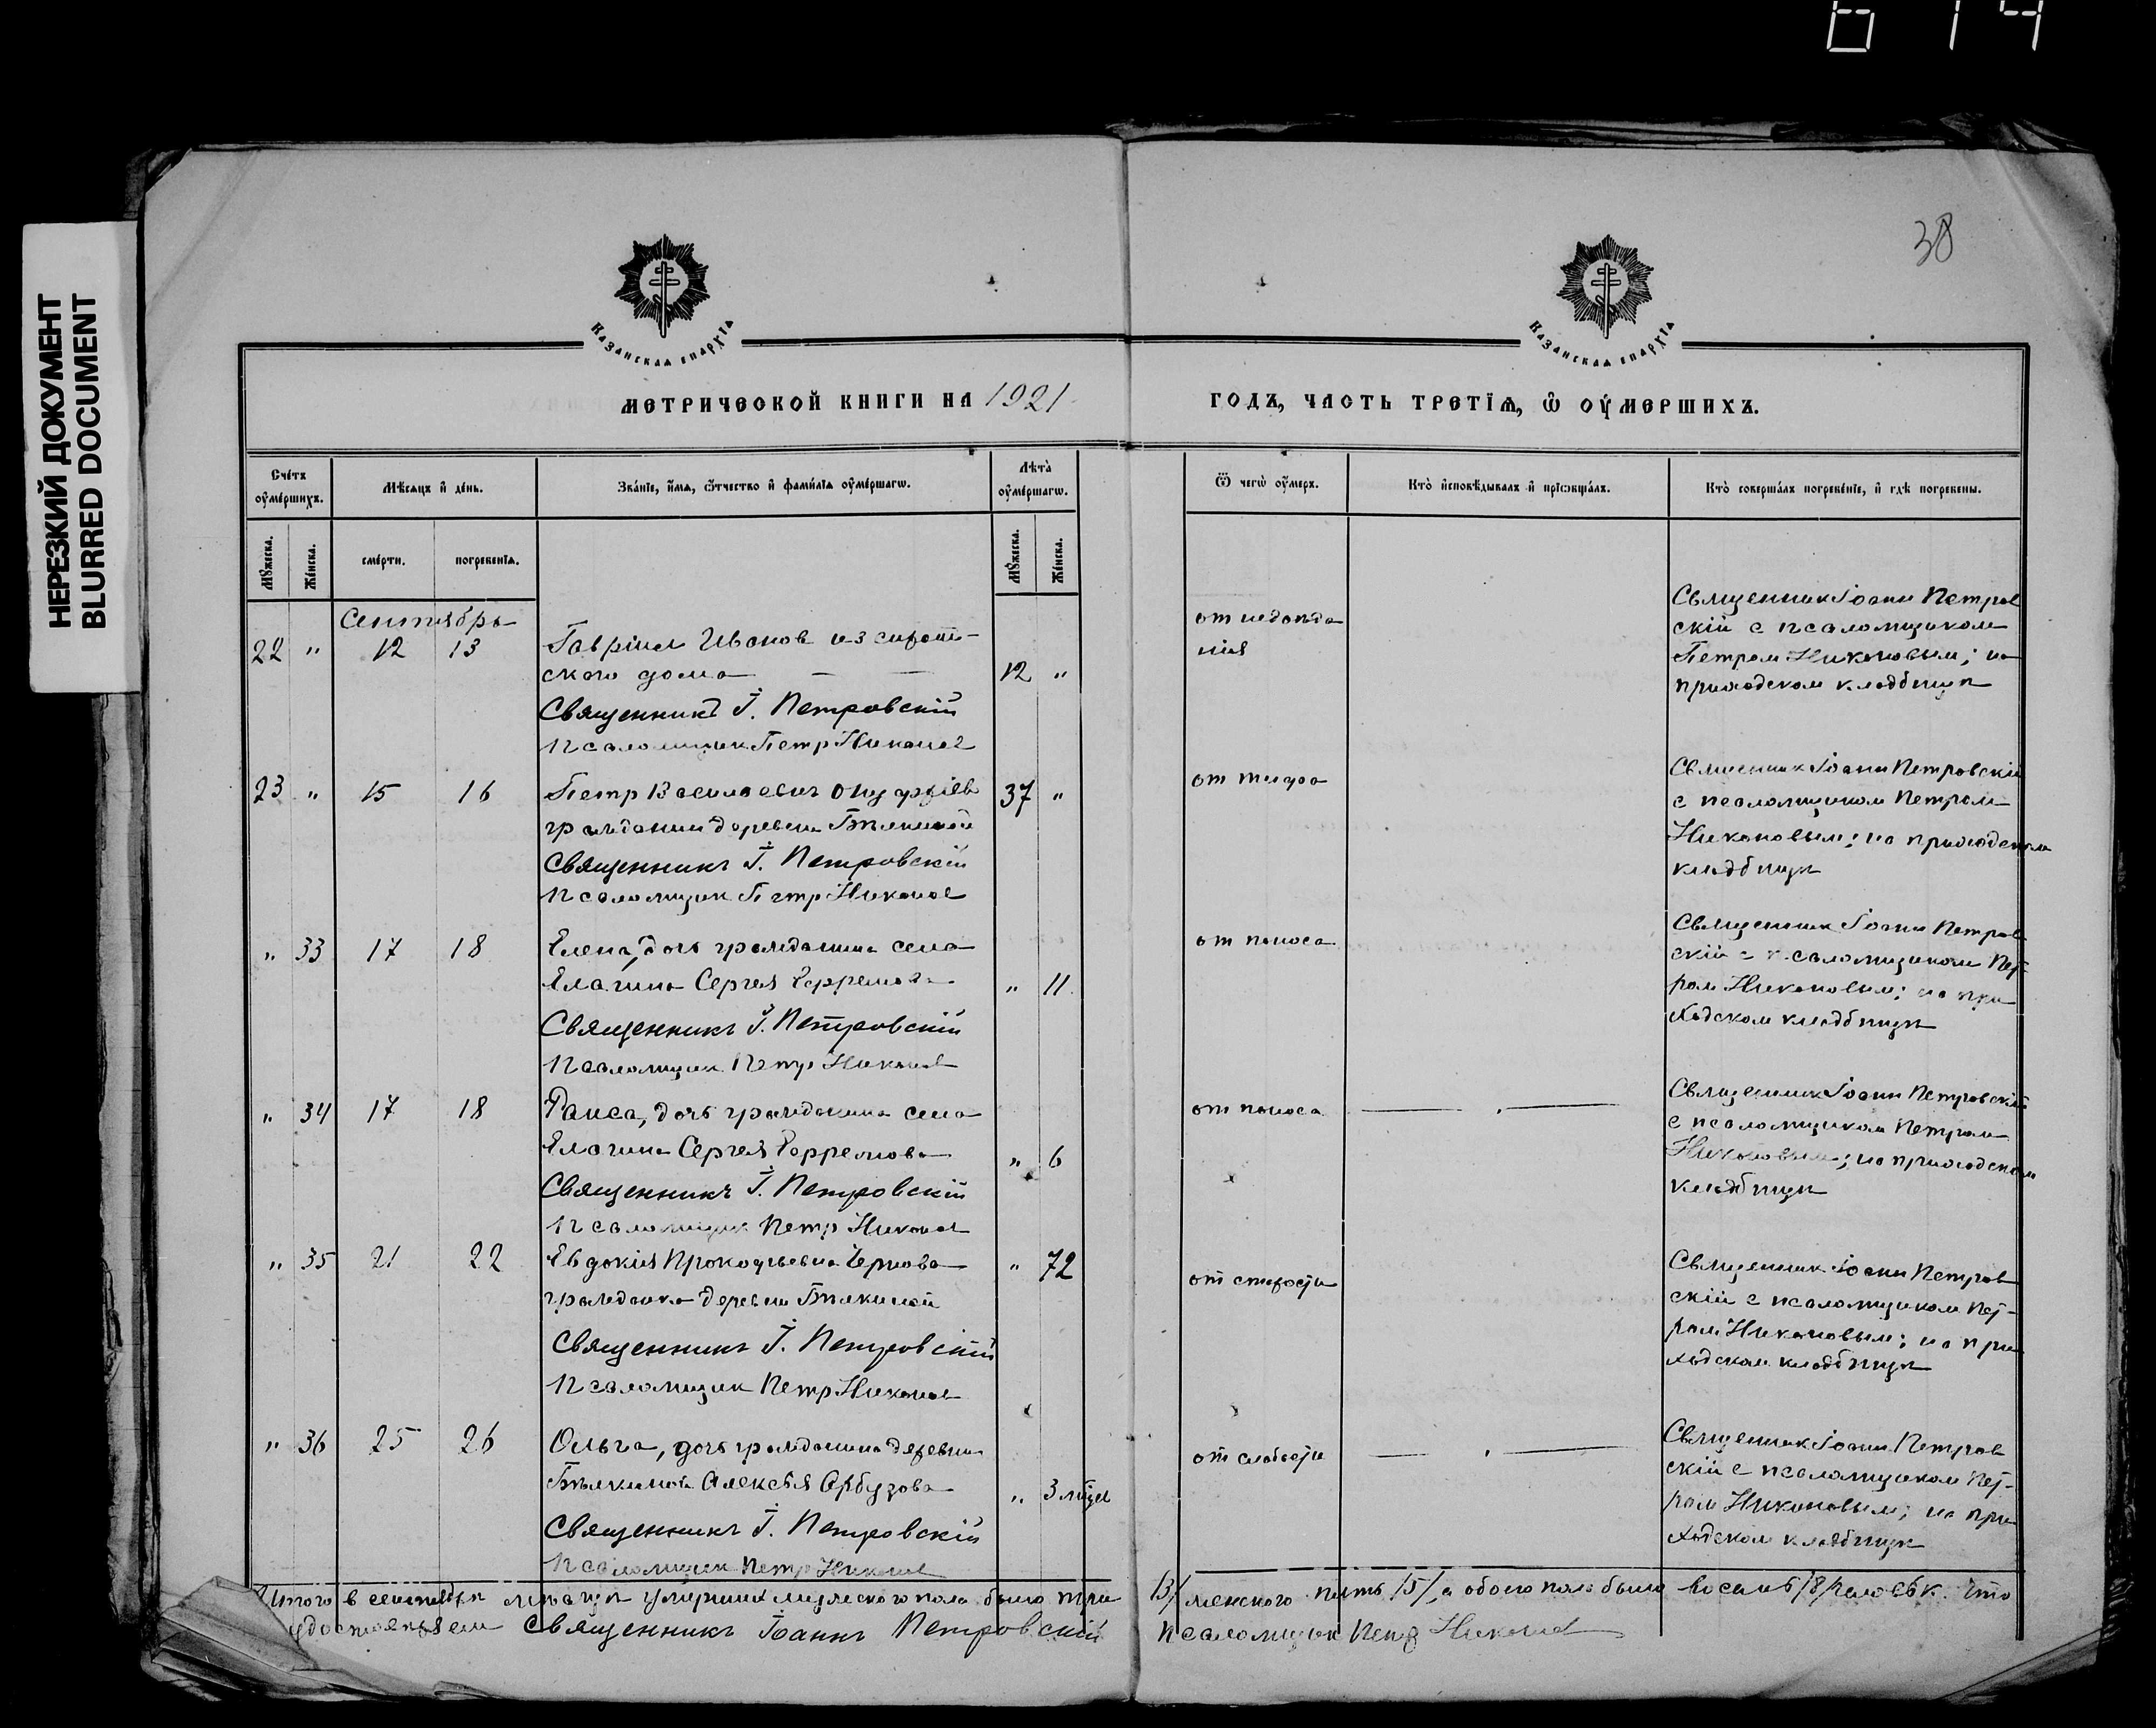 614
НЕРЕЗКИЙ ДОКУМЕНТ
BLURRED DOCUMENT
38
Казанская епархїѧ
Казанская епархїѧ
МЕТРИЧЕСКОЙ КНИГИ НА 1921
ГОДЪ, ЧАСТЬ ТРЕТЇѦ, Ѿ ОУМЕРШИХЪ.
Сче́тъ оу҆ме́ршихъ.
Мѣ́сяцъ и҆ де́нь.
Зва́нїе, и҆́мѧ, ѻ҆́тчество и҆ фами́лїѧ оу҆ме́ршагѡ.
Лѣта̀ оу҆ме́ршагѡ.
Ѿ чегѡ̀ оу҆́меръ.
Кто̀ и҆сповѣ́дывалъ и҆ прїѡбща́лъ.
Кто̀ соверша́лъ погребе́нїе, и҆ гдѣ̀ погребены.
Мꙋ́жеска.
Же́нска.
сме́рти.
погребенїѧ.
Мꙋ́жеска.
Же́нска.
Сентябрь
22 " 12 13 Гавріил Иванов из сирот-
ского дома — — 12 "
Священникъ І. Петровскій
Псаломщик Петр Никонов
от недоѣда
нія
Священник Іоанн Петров
скій с псаломщиком
Петром Никоновым; на
приходском кладбищѣ
23 " 15 16 Петр Васильевич Онуфріев 37 "
гражданин деревни Бѣлкиной
Священникъ І. Петровскій
Псаломщик Петр Никонов
от тифа
Священник Іоанн Петровскій
с псаломщиком Петром
Никоновым; на приходском
кладбищѣ
" 33 17 18 Елена, дочь гражданина села
Елагина Сергея Ефремова " 11
Священникъ І. Петровскій
Псаломщик Петр Никонов
от поноса
Священник Іоанн Петров
скій с псаломщиком Пет-
ром Никоновым; на при
ходском кладбищѣ
" 34 17 18 Раиса, дочь гражданина села
Елагина Сергея Ефремова " 6
Священникъ І. Петровскій
Псаломщик Петр Никонов
от поноса — " —
Священник Іоанн Петровскій
с псаломщиком Петром
Никоновым; на приходском
кладбищѣ
" 35 21 22 Евдокія Прокофьевна Чернова " 72
гражданка деревни
Священникъ І. Петровскій
Псаломщик Петр Никонов
от старости
Священник Іоанн Петров
скій с псаломщиком Пет-
ром Никоновым; на при
ходском кладбищѣ
" 36 25 26 Ольга, дочь гражданина деревни
Алексѣя Арбузова " 3 мѣсяц
Священникъ І. Петровскій
Псаломщик Петр Никонов
от слабости — " —
Священник Іоанн Петров
скій с псаломщиком Пет-
ром Никоновым; на при
ходском кладбищѣ
Итого в сентябрѣ мѣсяцѣ умерших мужеского пола было три
/3/ женского пять /5/, а обоего пола было восемь /8/ человѣк. Что
удостовѣряем Священникъ Іоаннъ Петровскій
псаломщик Петр Никонов